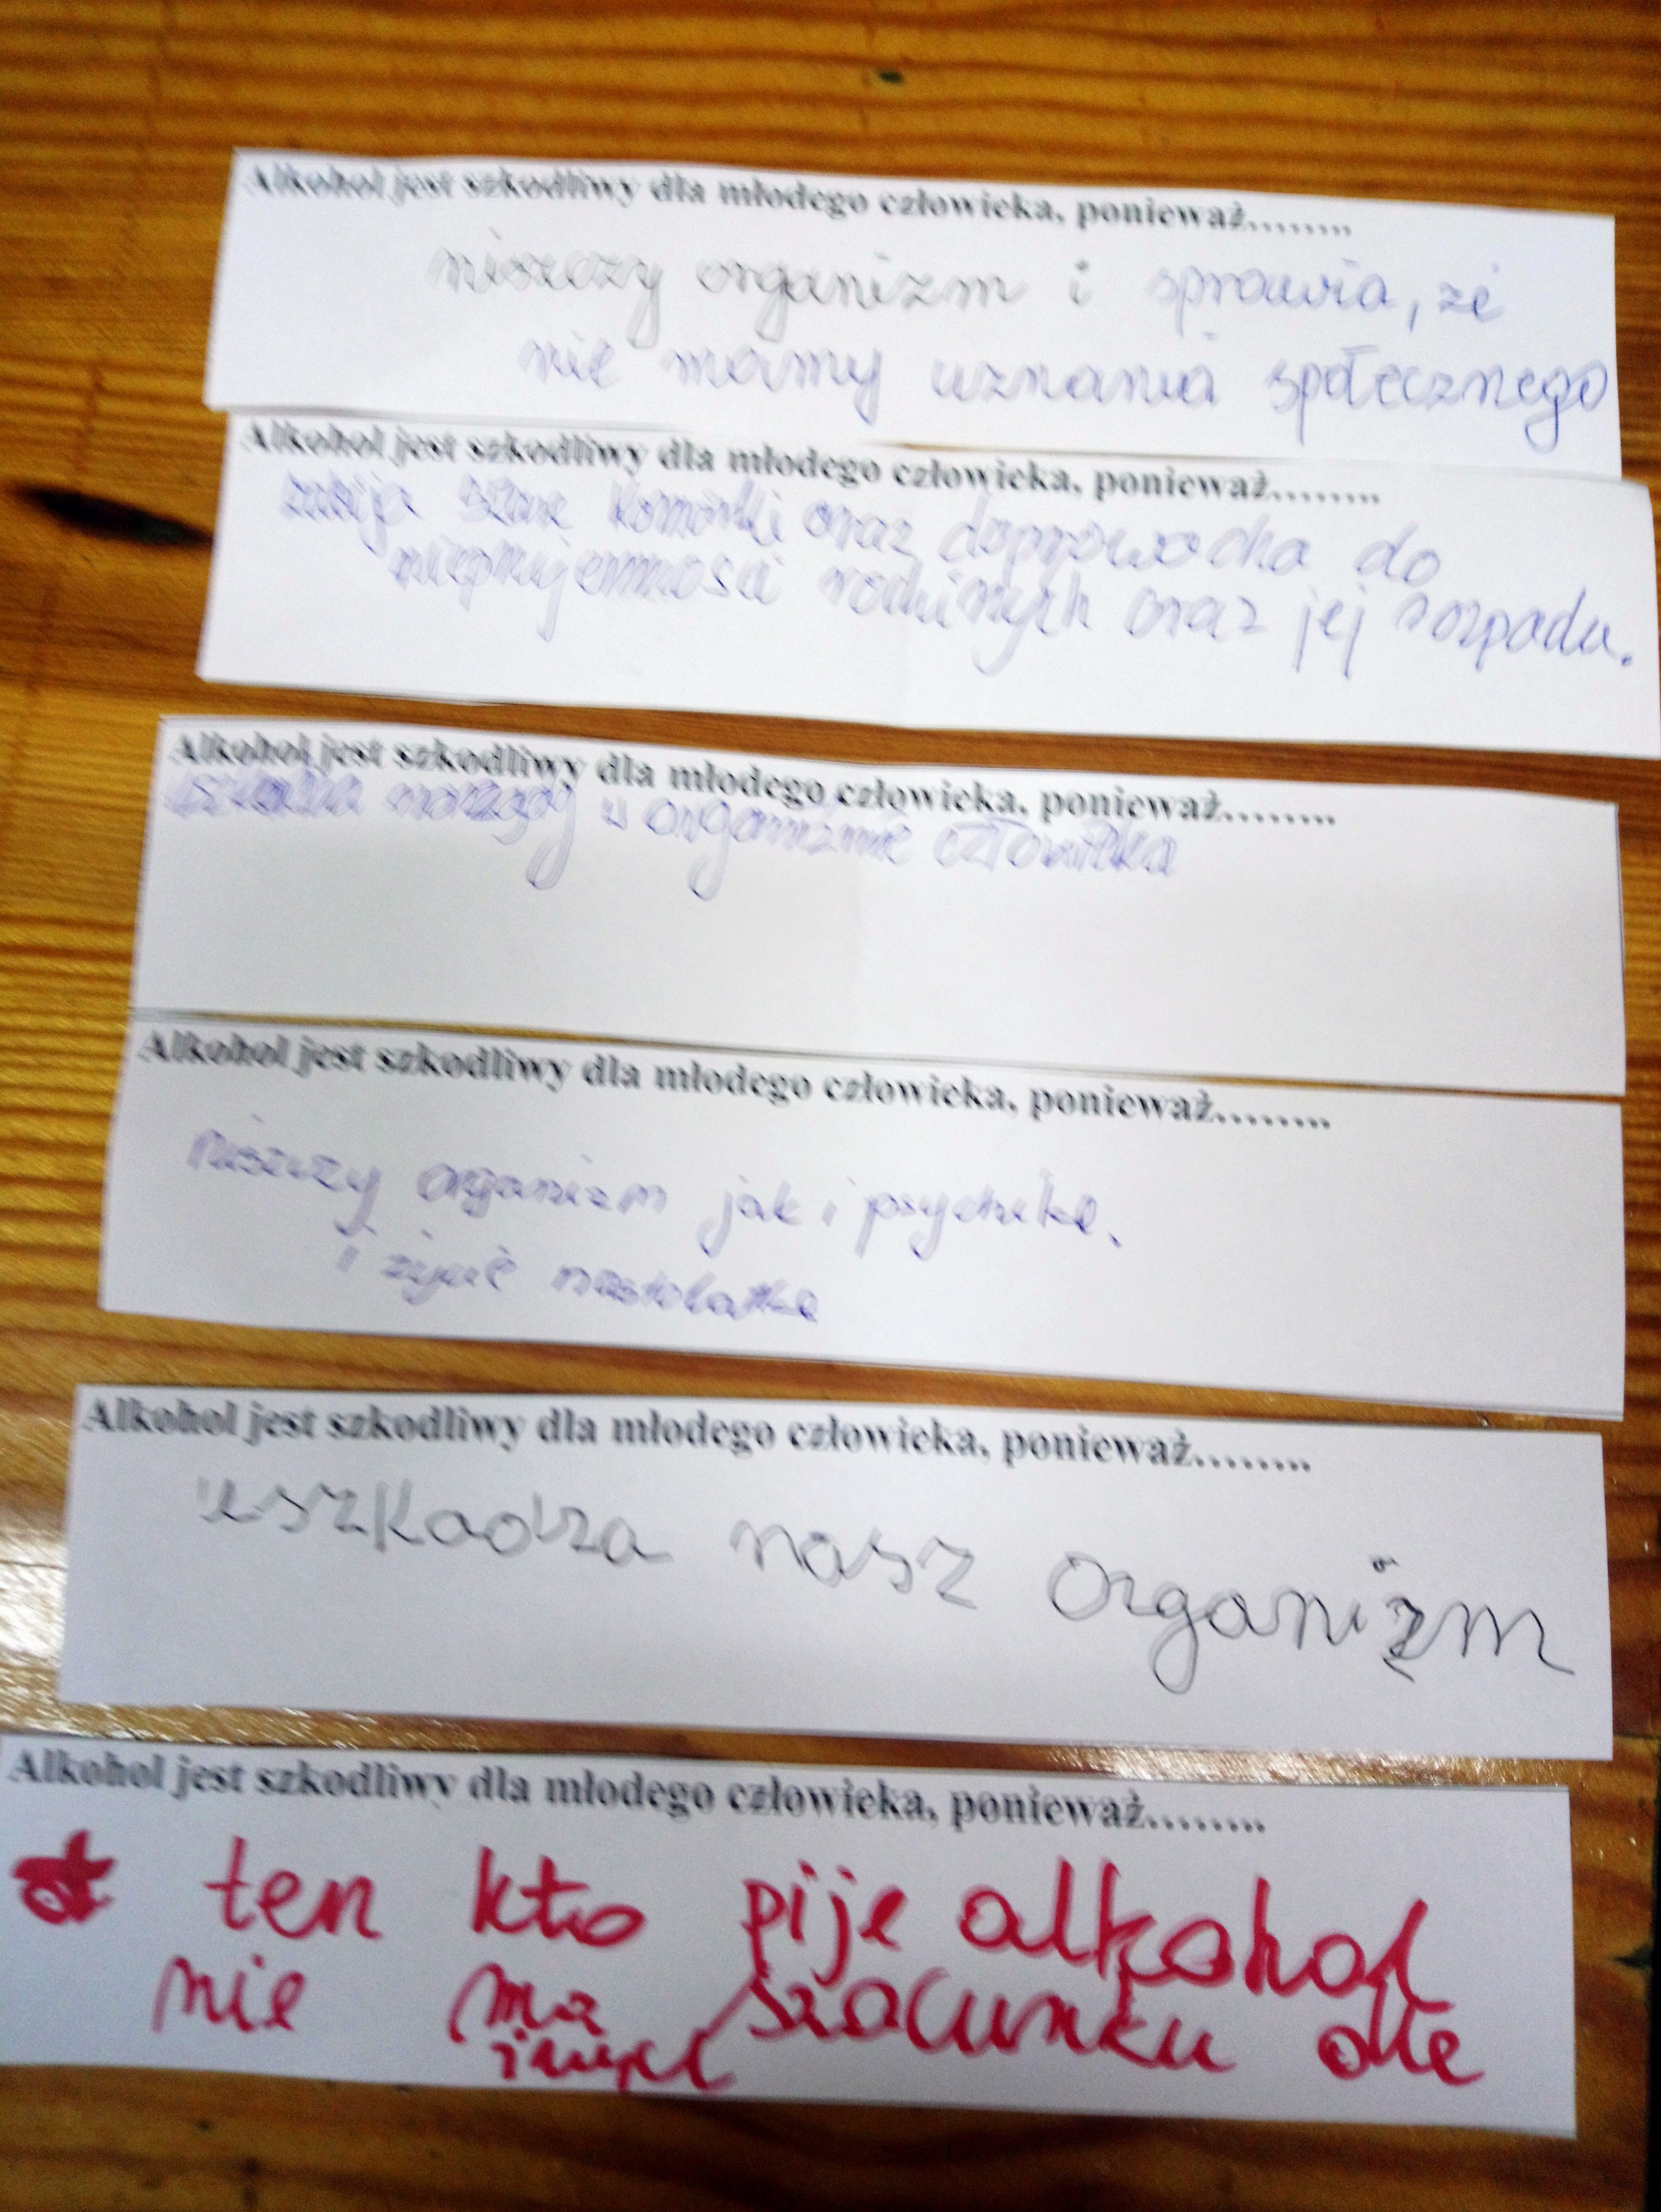 Alkohol jest szkodliwy dla młodego człowieka, ponieważ........
niszczy organizm i sprawia, że
nie mamy uznania społecznego
Alkohol jest szkodliwy dla młodego człowieka, ponieważ........
zabija szare komórki oraz doprowadza do
nieprzyjemności rodzinnych oraz jej rozpadu.
Alkohol jest szkodliwy dla młodego człowieka, ponieważ........
uszkadza narządy w organizmie człowieka
Alkohol jest szkodliwy dla młodego człowieka, ponieważ........
niszczy organizm jak i psychikę.
i życie nastolatka
Alkohol jest szkodliwy dla młodego człowieka, ponieważ........
uszkadza nasz organizm
Alkohol jest szkodliwy dla młodego człowieka, ponieważ........
ten kto pije alkohol
nie ma szacunku dla